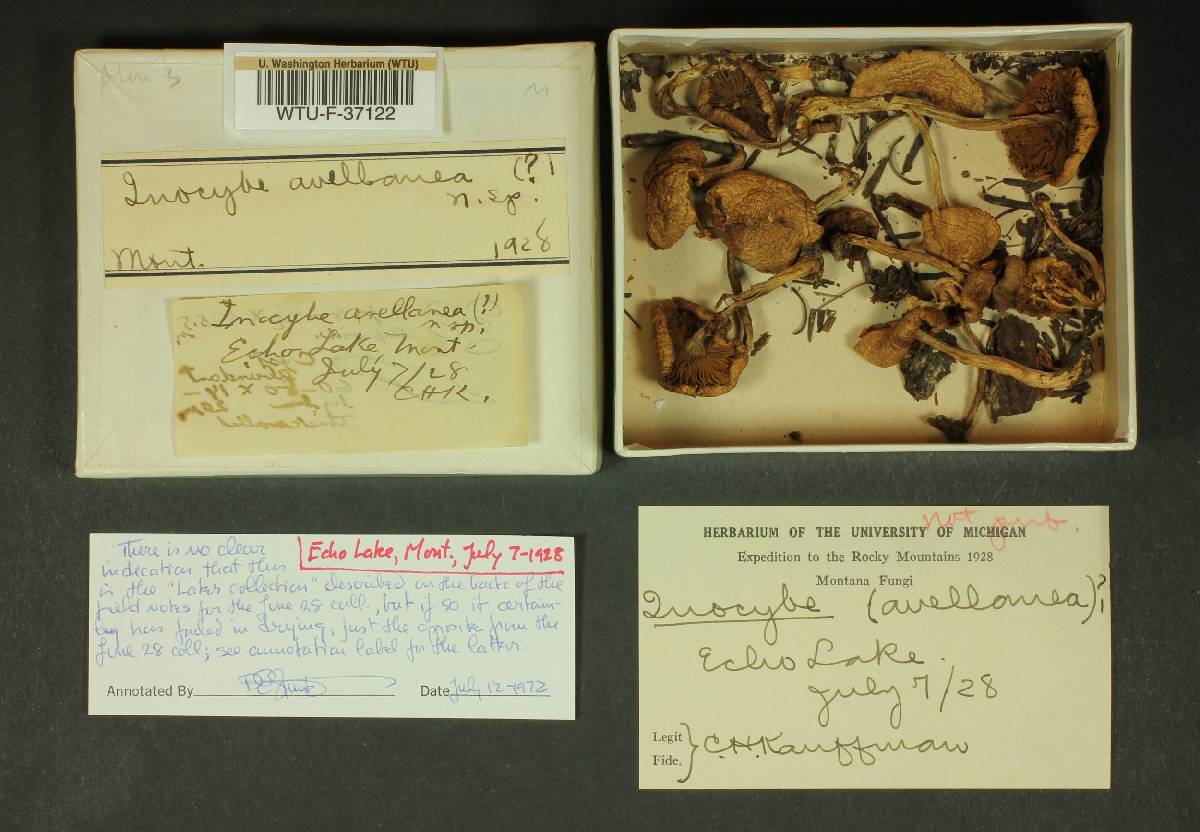 Mon 3
U. Washington Herbarium (WTU)
WTU-F-37122
M
Inocybe avellanea (?)
n. sp.
Mont. 1928
Inocybe avellanea (?)
n sp.
Echo Lake Mont.
July 7/28
CHK.
There is no clear
indication that this
Echo Lake, Mont., July 7-1928
is the "Later collection" described on the back of the
field notes for the June 28 coll., but if so it certain-
ly has faded in drying, just the opposite from the
June 28 coll; see annotation label for the latter.
Annotated By
Date July 12-1972
not pub.
HERBARIUM OF THE UNIVERSITY OF MICHIGAN
Expedition to the Rocky Mountains 1928
Montana Fungi
Inocybe (avellanea)?
Echo Lake.
July 7/28
Legit
Fide.
C.H.Kauffman